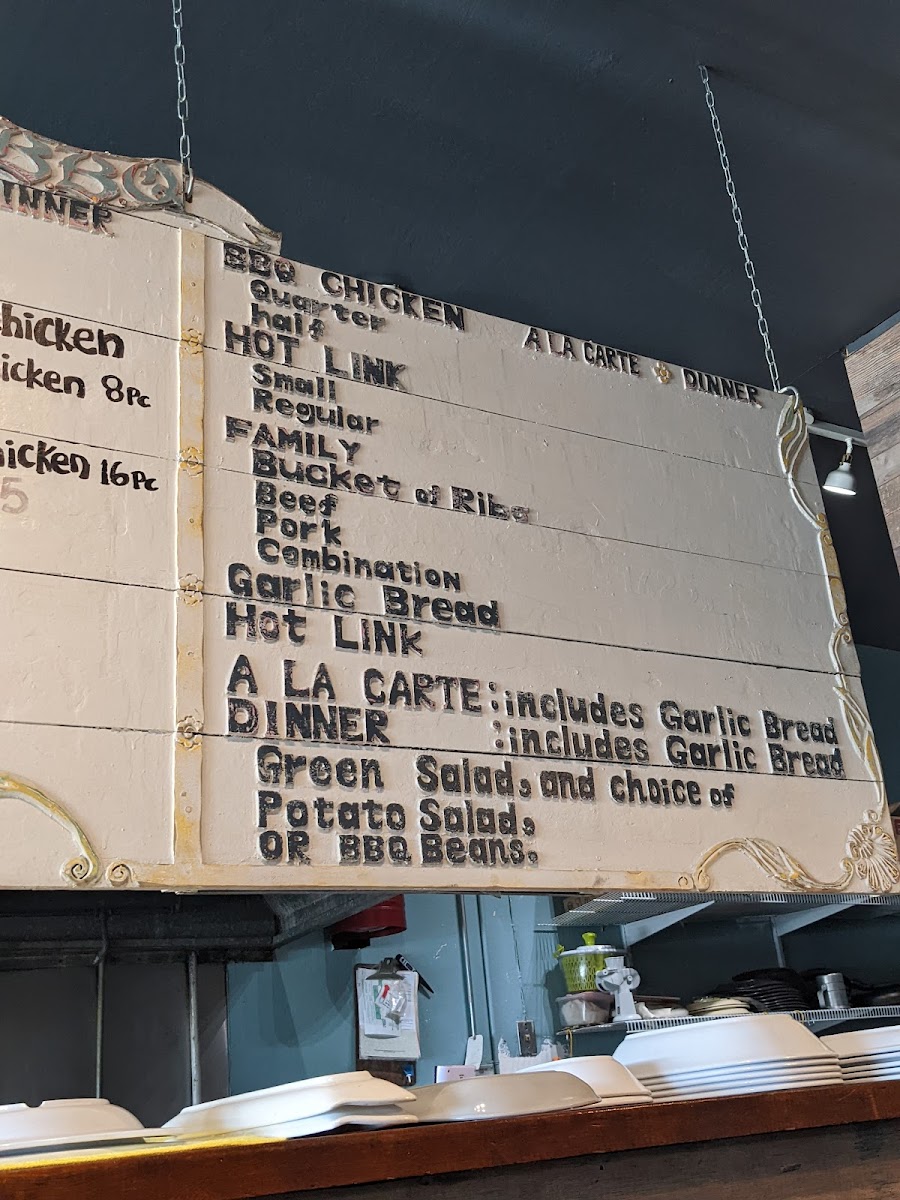 BBQ
DINNER
Chicken
Chicken 8Pc
Chicken 16Pc
5
BBQ CHICKEN
A LA CARTE DINNER
Quarter
half
HOT LINK
Small
Regular
FAMILY
Bucket of Ribs
Beef
Pork
Combination
Garlic Bread
Hot LINK
A LA CARTE : includes Garlic Bread
DINNER : includes Garlic Bread
Green Salad, and choice of
Potato Salad,
OR BBQ Beans.